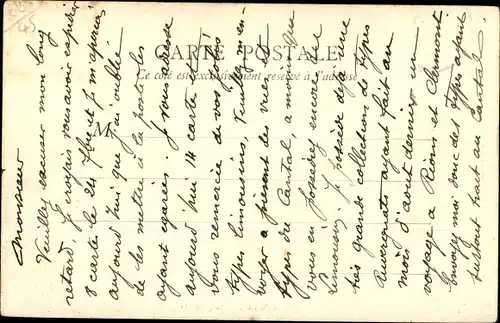 CARTE POSTALE
Ce côté est exclusivement réservé à l'adresse
M
Monsieur
Veuillez excuser mon long
retard, je croyais vous avoir expédié
8 carte le 24 7bre et je m'aperçois
aujourd'hui que j'ai oublié
de les mettre à la poste les
ayant egarés. Je vous adresse
aujourd'hui 14 carte et
vous remercie de vos jolis
types limousins, Veuillez m'en-
voyer a present des vues et
types du Cantal, a moins que
vous en possediez encore du
Limousin. Je possède deja une
très grande collection de types
Auvergnats ayant fait au
mois d'aout dernier un
voyage a Riom et Clermont
Envoyez moi donc des types ayant
surtout trait au Cantal